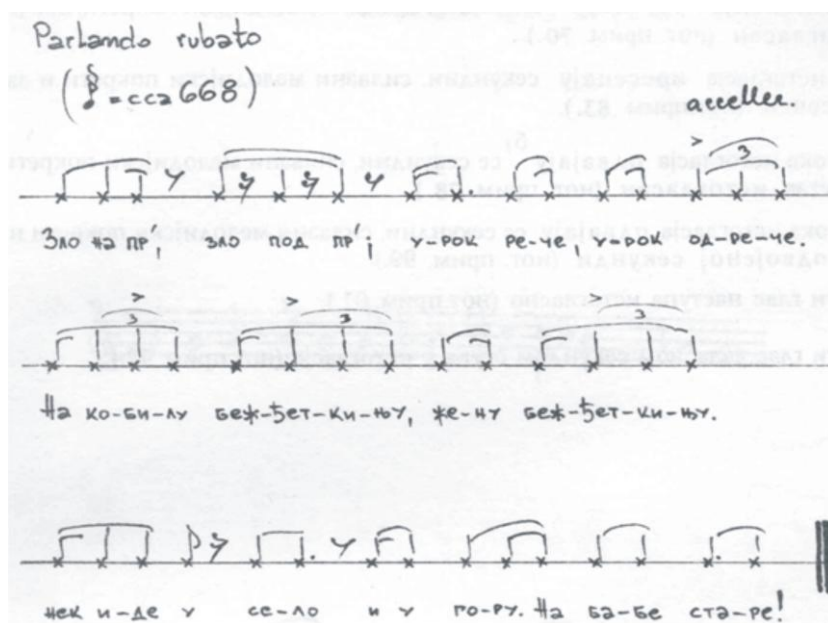 Parlando rubato
(♪=cca 668)
acceller.
3
Зло на пр', зло под пр', у-рок ре-че, у-рок од-ре-че.
3 3 3
На ко-би-лу беж-ђет-ки-њу, же-ну беж-ђет-ки-њу.
нек и-де у се-ло и у го-ру. На ба-бе ста-ре!